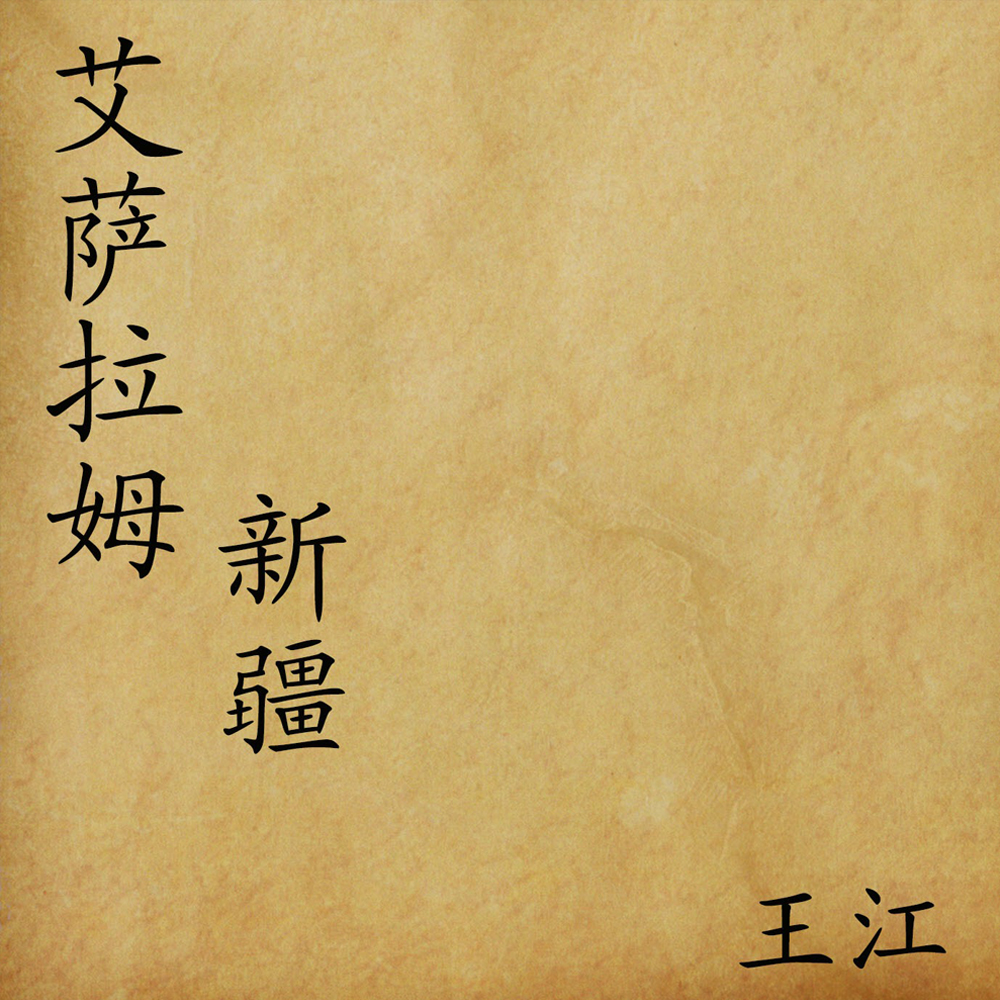 艾萨拉姆
新疆
王江